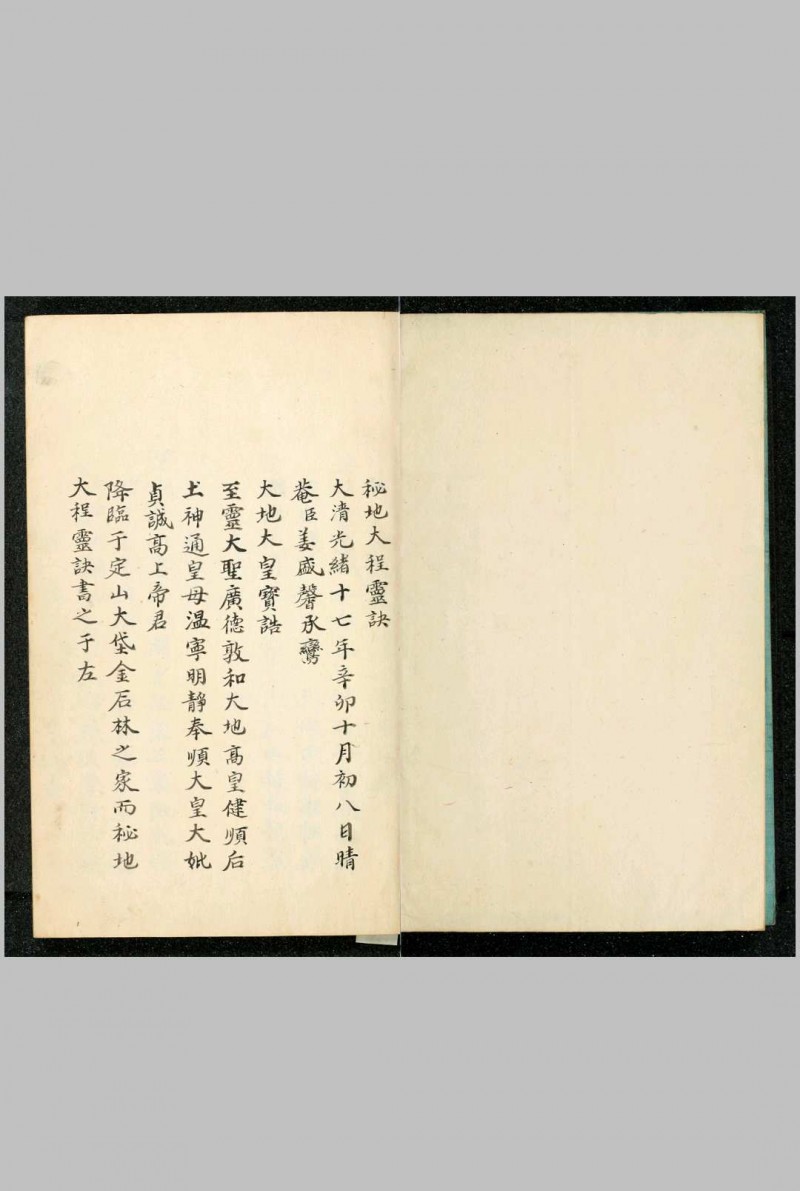 秘地大程靈訣
大清光緒十七年辛卯十月初八日晴
菴臣姜盛馨承鸞
大地大皇寳誥
至靈大聖廣德敦和大地高皇健順后
土神通皇母溫寧明靜奉順大皇大妣
貞誠高上帝君
降臨于定山大垈金石林之家而秘地
大程靈訣書之于左